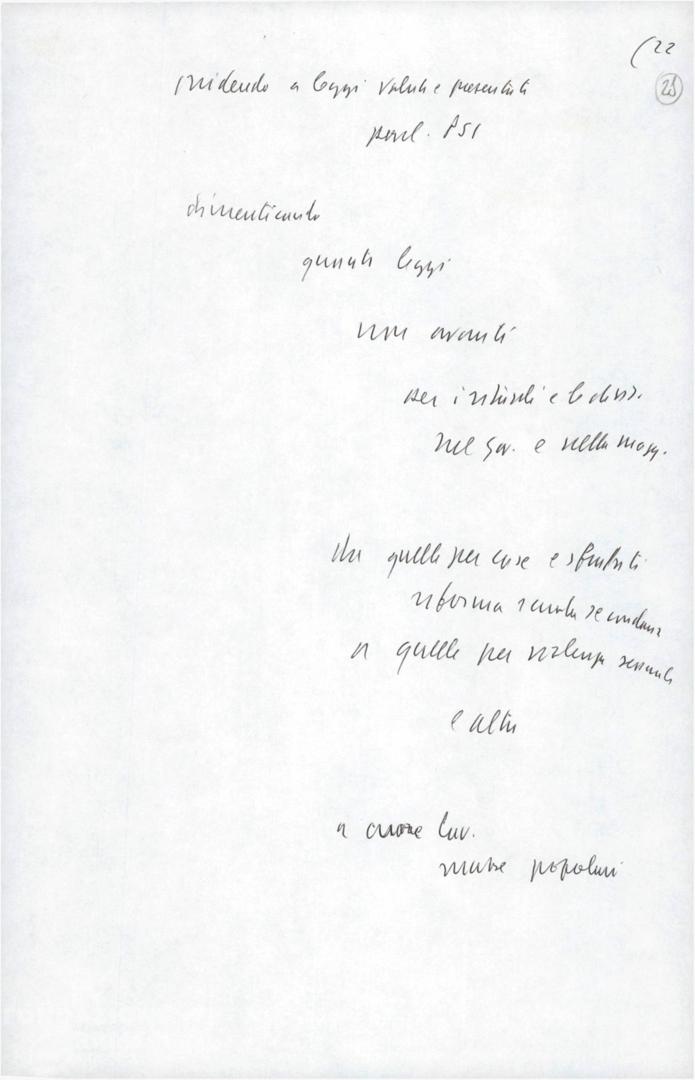 (22
23
irridendo a leggi volute e presentate
parl. PSI
dimenticando
quante leggi
non avanti
per i ritardi e le divis.
nel gov. e nella magg.
da quelle per case e sfratti
riforma scuola secondaria
a quelle per violenza sessuale
e altre
a cuore lav.
masse popolari